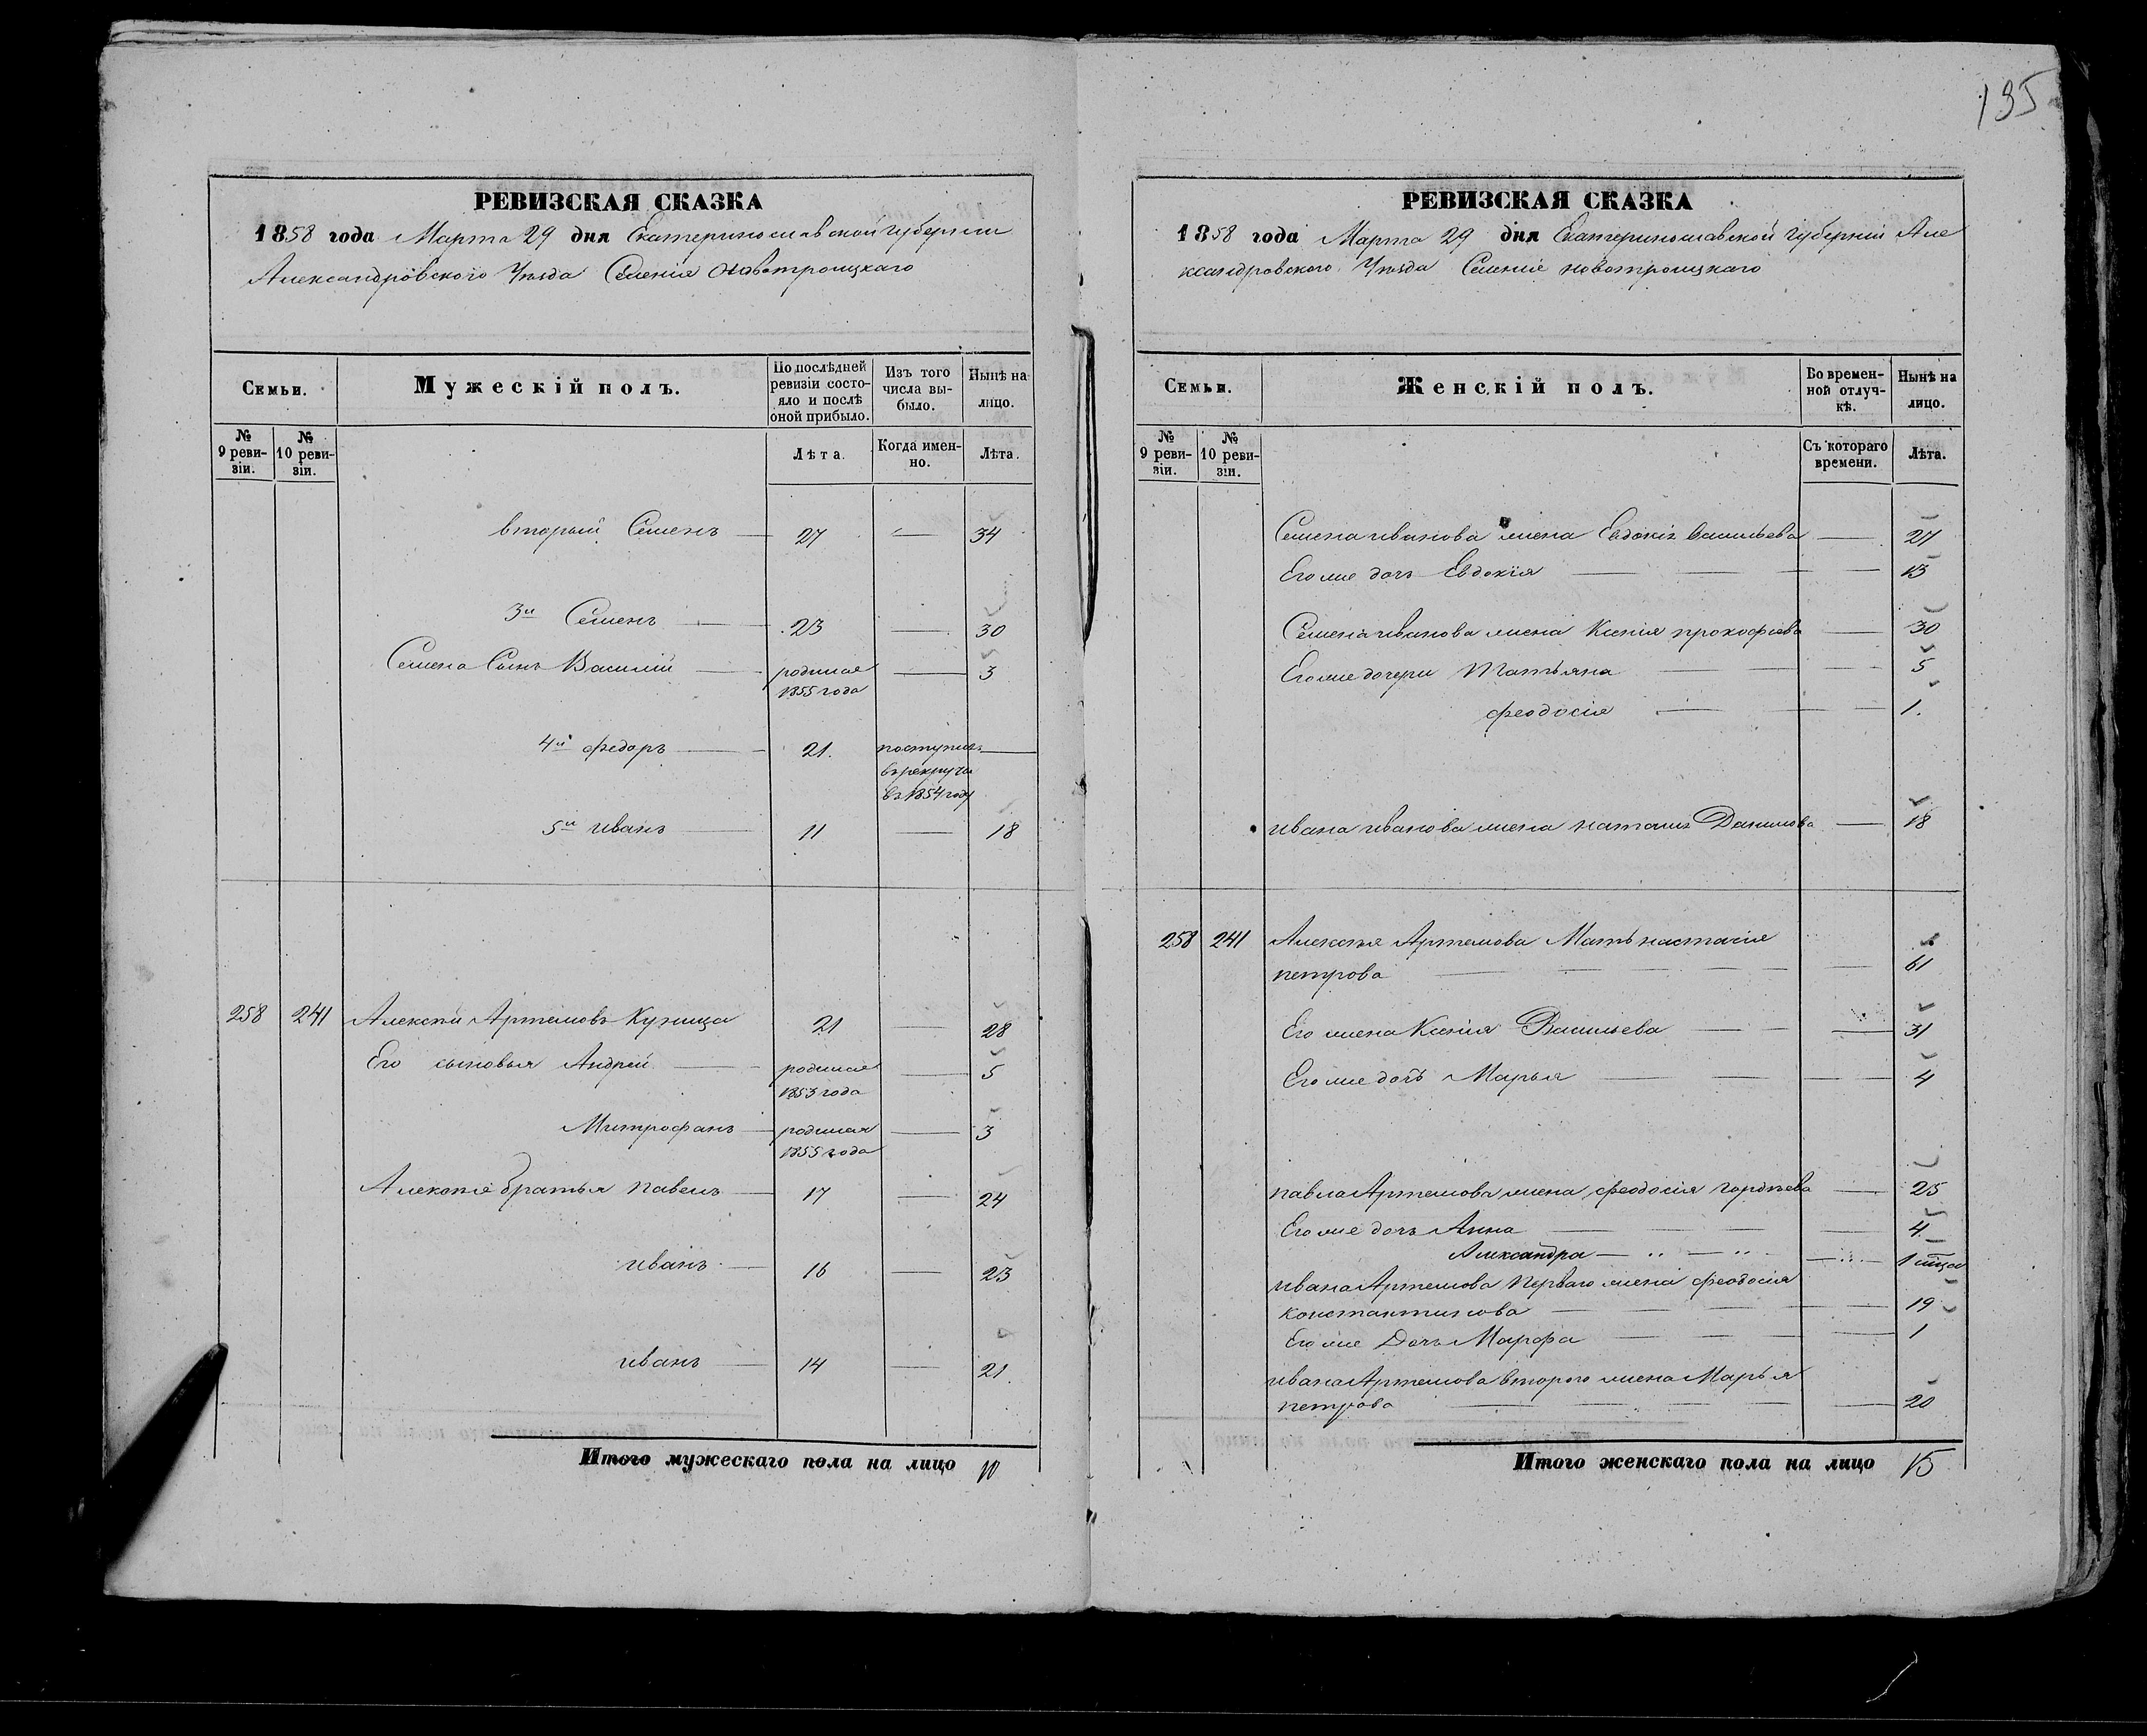 135
РЕВИЗСКАЯ СКАЗКА
1858 года Марта 29 дня Екатеринославской губернии
Александровского Уѣзда Селенія Новотроицкаго
Семьи.
Мужескій полъ.
По послѣдней ревизіи состояло и послѣ оной прибыло.
Изъ того числа выбыло.
Нынѣ на лицо.
№ 9 ревизіи.
№ 10 ревизіи.
Лѣта.
Когда именно.
Лѣта.
вторый Семенъ 27 — 34
3й Семенъ 23 — 30
Семена Сынъ Василій родился — 3
1855 года
4й федоръ 21. поступилъ —
в рекруты
въ 1854 году
5й иванъ 11 — 18
258 241 Алексѣй Артемовъ Курица 21 — 28
Его сыновья Андрей родился — 5
1853 года
Митрофанъ родился — 3
1855 года
Алексѣя братья павелъ 17 — 24
иванъ 16 — 23
иванъ 14 — 21.
Итого мужескаго пола на лицо 10
РЕВИЗСКАЯ СКАЗКА
1858 года Марта 29 дня Екатеринославской губерніи Але
ксандровского Уѣзда Селеніе новотроицкаго
Семьи.
Женскій полъ.
Во временной отлучкѣ.
Нынѣ на лицо.
№ 9 ревизіи.
№ 10 ревизіи.
Съ котораго времени.
Лѣта.
Семена иванова жена Евдокія Васильева — 27
Его же дочь Евдокія — 13
Семена иванова жена Ксенія прокофіева — 30
Его же дочери Татьяна — 5
феодосія — 1.
ивана иванова жена наталія Данилова — 18
258 241 Алексѣя Артемова Мать настасія
петрова — 61
Его жена Ксенія Васильева — 31
Его же дочь Марья — 4
павла Артемова жена феодосія гордѣева — 25
Его же дочь Анна — 4.
Александра — 1 мѣца
ивана Артемова Перваго жена феодосія
константинова — 19
Его же Дочь Марфа — 1
ивана Артемова второго жена Марья
петрова — 20
Итого женскаго пола на лицо 15